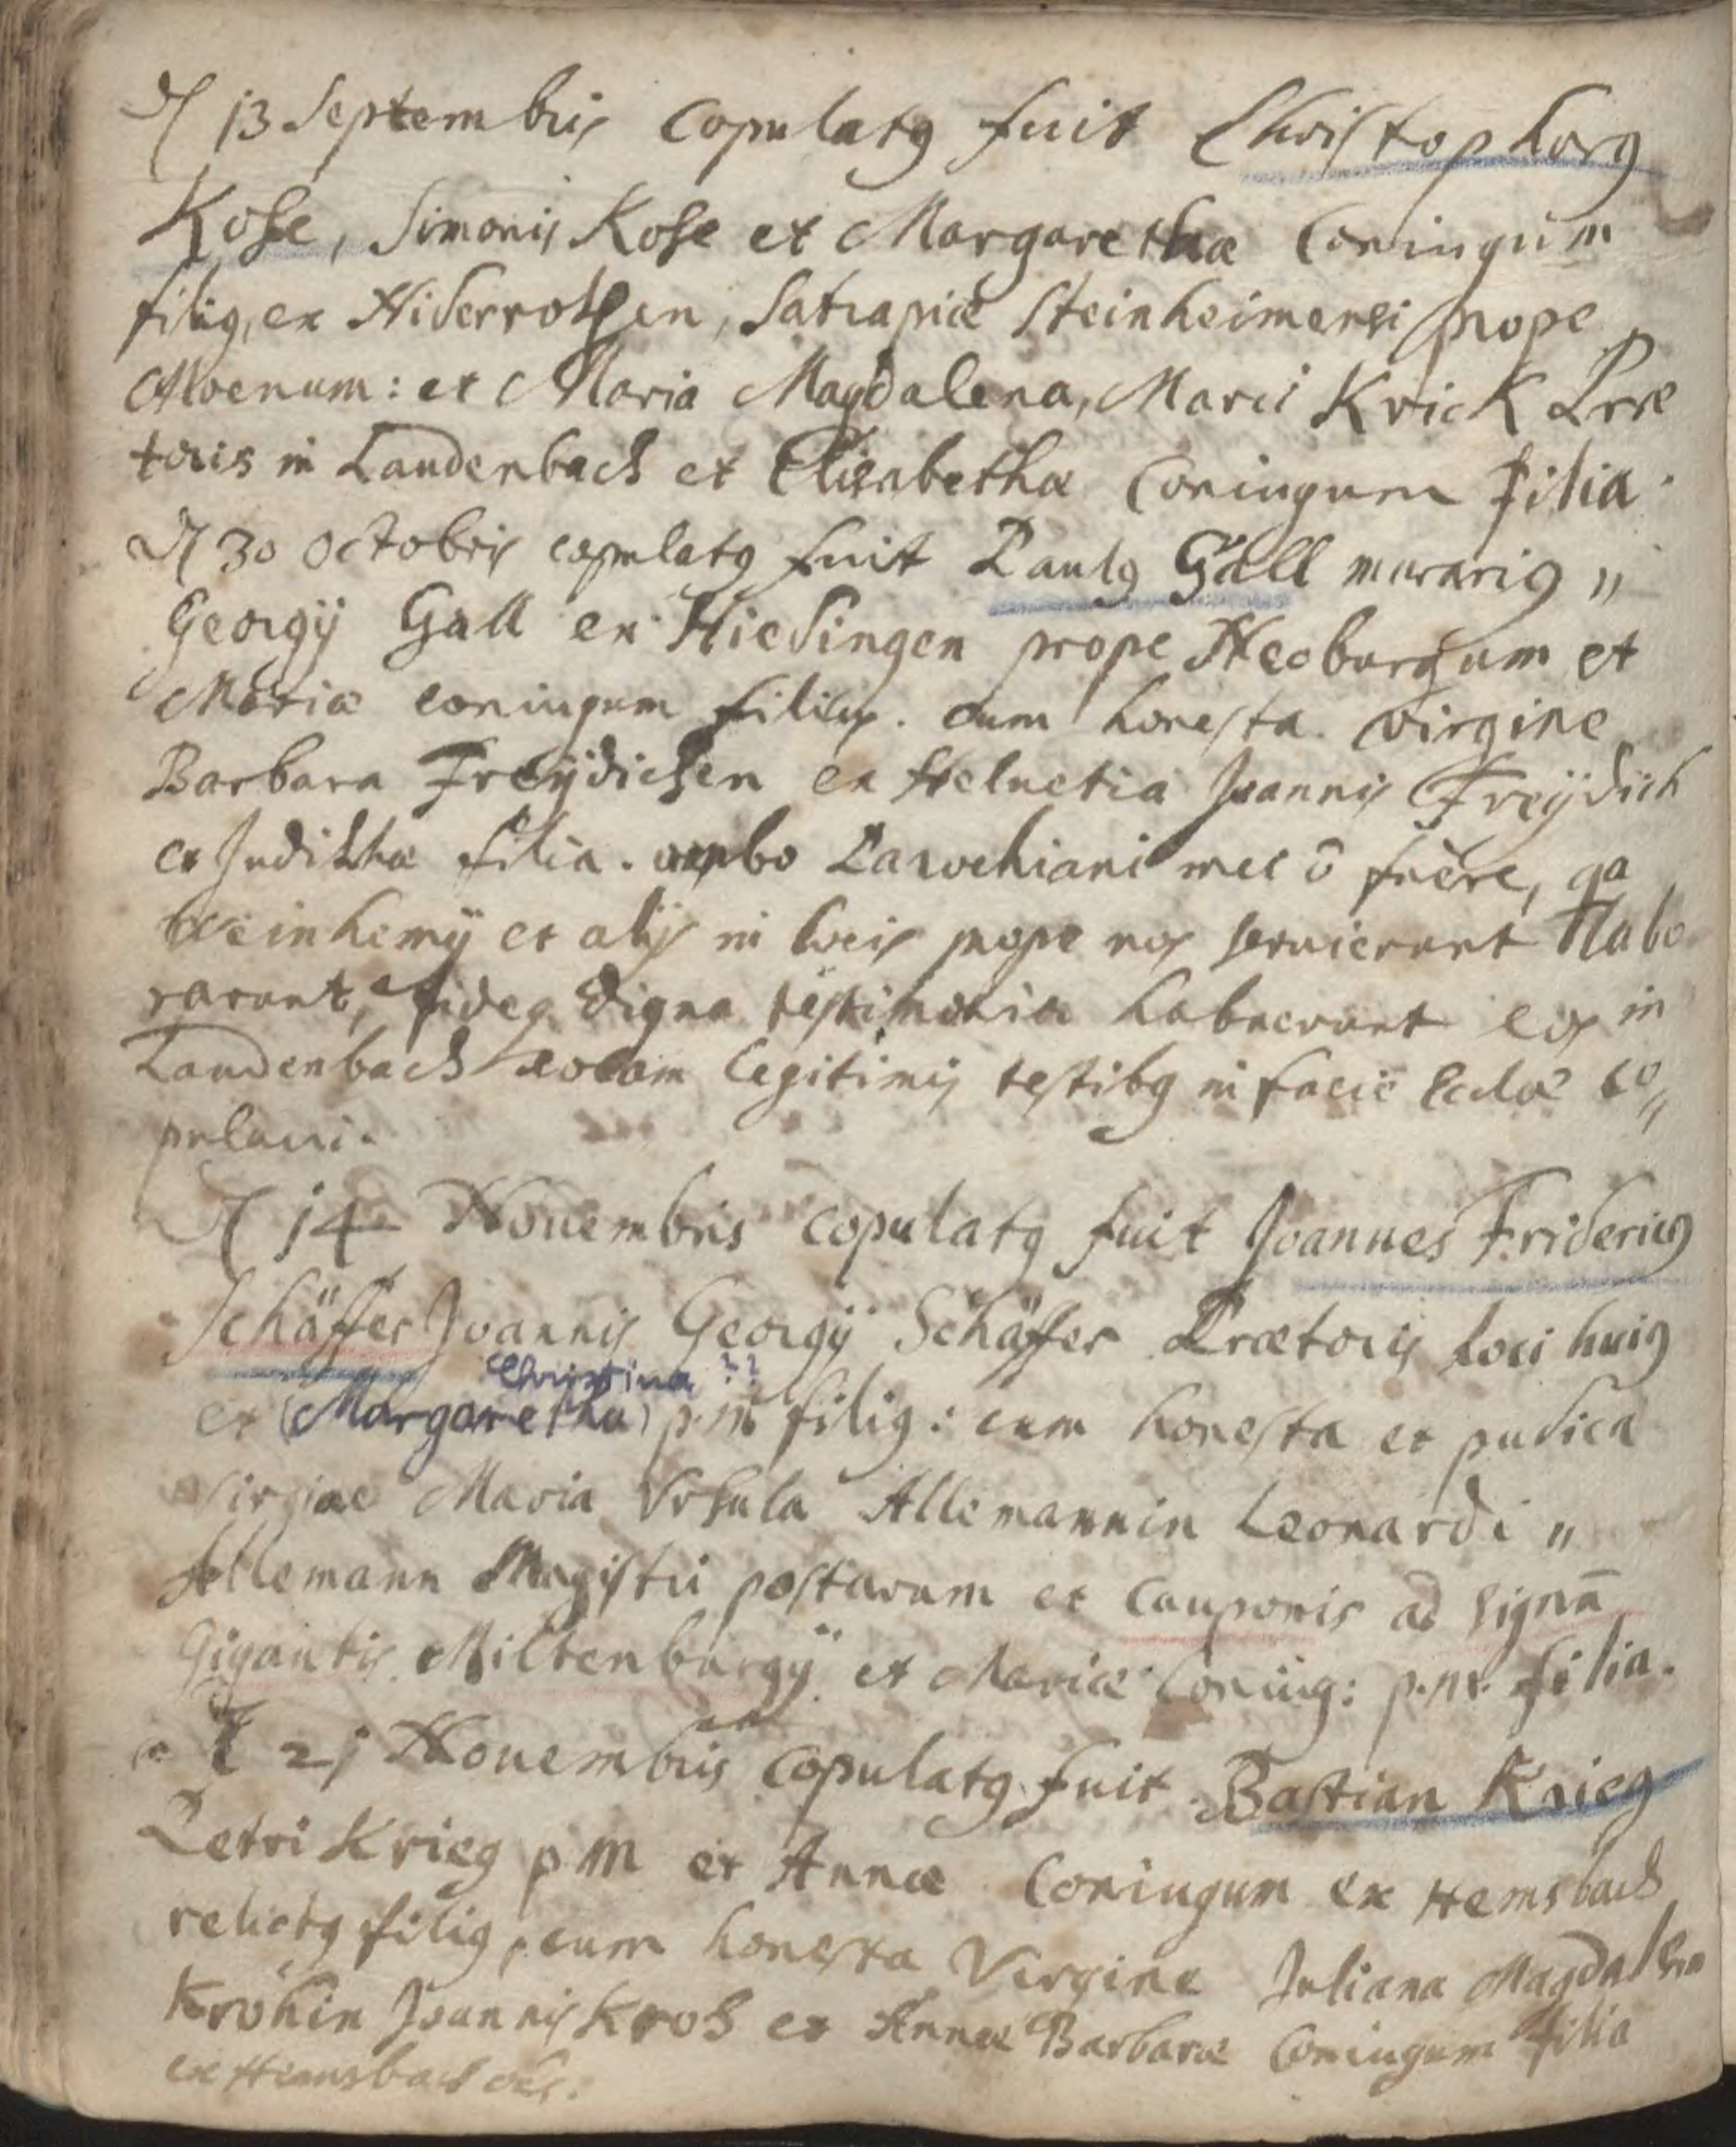 13 Septembris copulatq fuit Christophorq
Kose, Simonis Kose et Margarethæ Coniugum
filiq, ex Niderrothen, Satrapiæ Steinheimensi prope
Moenum: et Maria Magdalena, Marci Krick Præ
toris in Laudenbach et Elisabethæ Coniugum filia.
30 Octobris copulatq fuit Paulq Gall murariq "
Georgÿ Gall ex Hiedingen prope Neoburgum et
Mariæ coniugum filius. cum honesta virgine
Barbara Freÿdichen ex Heluetia Joannis Freÿdich
et Judithæ filia. ambo Parochiani mei ō fuêre, qa
Weinhemÿ et alÿs in locis prope nos seruierunt & labo
rarunt, fideq digna testimonia habuerunt eos in
Laudenbach coram legitimis testibq in facie Eccliæ co"
pulaui.
14 Nouembris copulatq fuit Joannes Fridericq
Schäffer Joannis Georgÿ Schäffer Prætoris loci huiq
Christina ??
et (Margaretha) p m filiq: cum honesta et pudica
Virgine Maria Vrsula Allemannin Leonardi "
Allemann Magistri postarum et Cauponis ad signū
Gigantis Miltenburgÿ et Mariæ Coniug: p.m. filia.
21 Nouembris copulatq fuit Bastian Krieg
Petri Krieg p m et Annæ Coniugum ex Hemsbach
relictq filiq, cum honesta Virgine Juliana Magdalena
Kröhin Joannis Kroh et Annæ Barbaræ Coniugum filia
ex Hemsbach